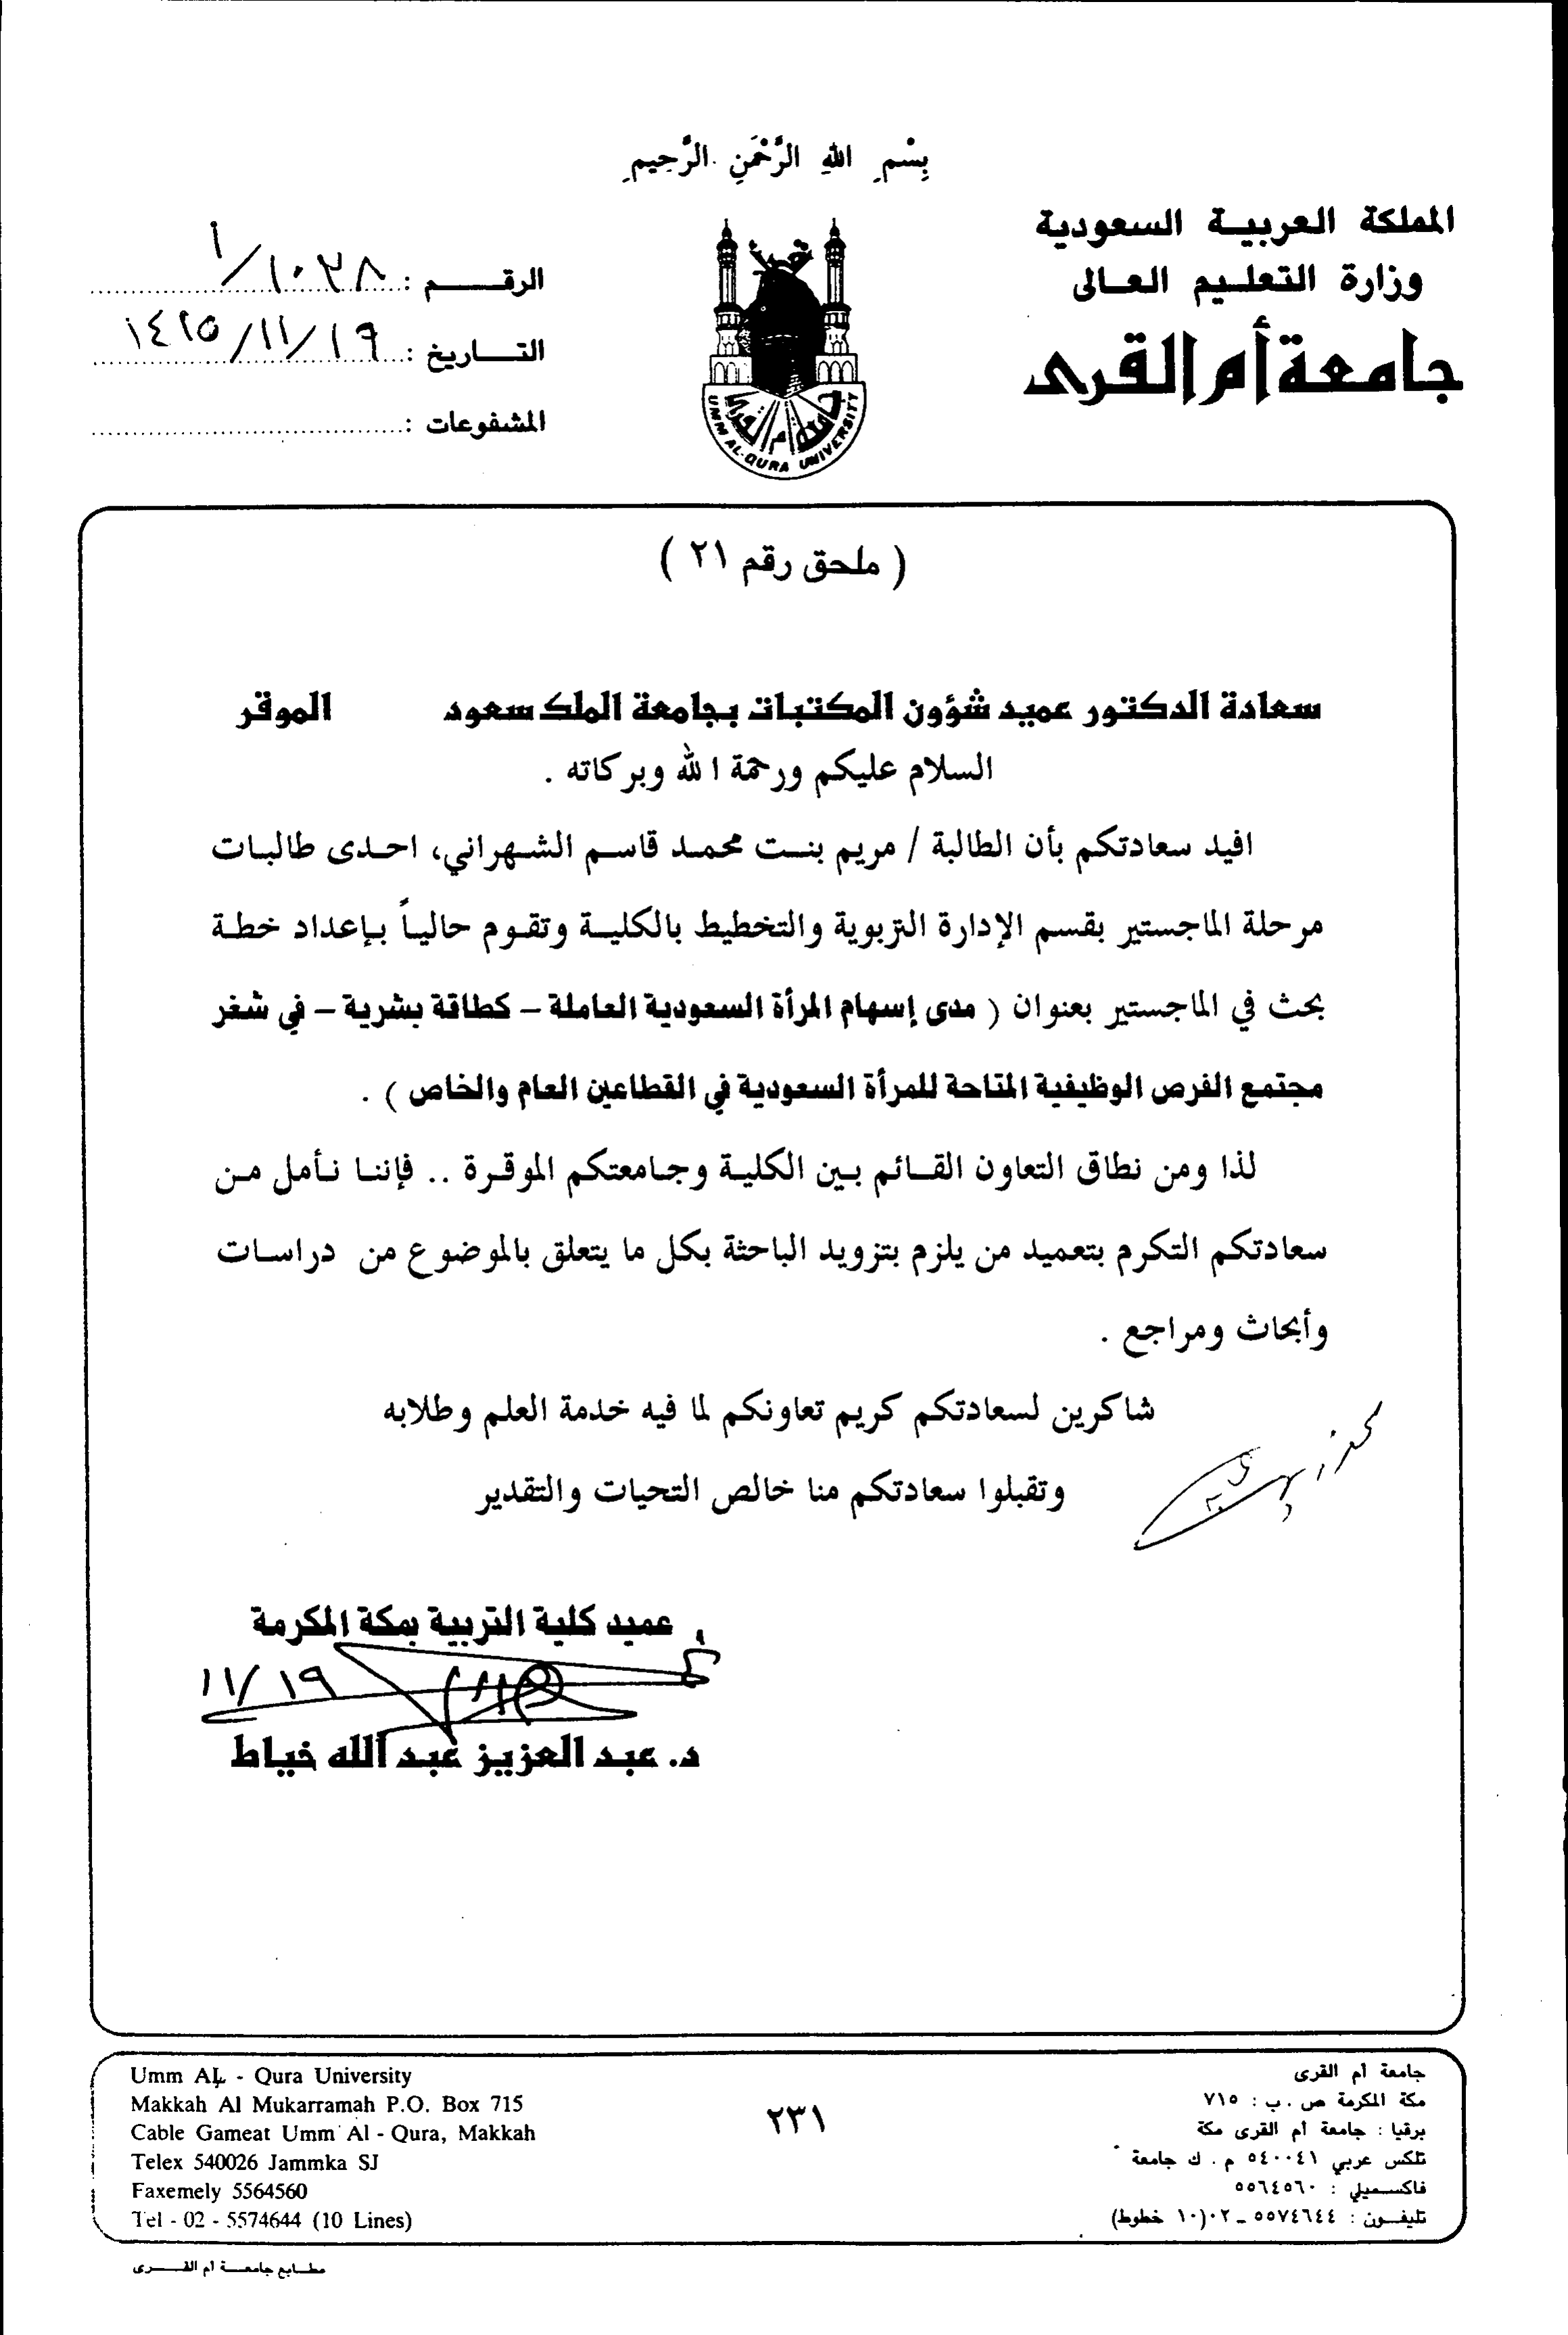 بِسْمِ اللهِ الرَّحْمَنِ الرَّحِيمِ
المملكة العربية السعودية
وزارة التعليم العالى
جامعة أم القرى
UMM AL-QURA UNIVERSITY
الرقم : ١/١٠٢٨
التاريخ : ١٤٢٥/١١/١٩
المشفوعات :
( ملحق رقم ٢١ )
سعادة الدكتور عميد شؤون المكتبات بجامعة الملك سعود الموقر
السلام عليكم ورحمة الله وبركاته .
افيد سعادتكم بأن الطالبة / مريم بنت محمد قاسم الشهراني، احدى طالبات
مرحلة الماجستير بقسم الإدارة التربوية والتخطيط بالكلية وتقوم حالياً بإعداد خطة
بحث في الماجستير بعنوان ( مدى إسهام المرأة السعودية العاملة – كطاقة بشرية – في شغر
مجتمع الفرص الوظيفية المتاحة للمرأة السعودية في القطاعين العام والخاص ) .
لذا ومن نطاق التعاون القائم بين الكلية وجامعتكم الموقرة .. فإننا نأمل من
سعادتكم التكرم بتعميد من يلزم بتزويد الباحثة بكل ما يتعلق بالموضوع من دراسات
وأبحاث ومراجع .
شاكرين لسعادتكم كريم تعاونكم لما فيه خدمة العلم وطلابه
وتقبلوا سعادتكم منا خالص التحيات والتقدير
عميد كلية التربية بمكة المكرمة
١١/١٩
د. عبد العزيز عبد الله خياط
جامعة أم القرى
مكة المكرمة ص . ب : ٧١٥
برقيا : جامعة أم القرى مكة
تلكس عربي ٥٤٠٠٤١ م . ك جامعة
فاكسميلي : ٥٥٦٤٥٦٠
تليفون : ٥٥٧٤٦٤٤ – ٠٢ (١٠ خطوط)
٢٣١
Umm AL - Qura University
Makkah Al Mukarramah P.O. Box 715
Cable Gameat Umm Al - Qura, Makkah
Telex 540026 Jammka SJ
Faxemely 5564560
Tel - 02 - 5574644 (10 Lines)
مطابع جامعة أم القرى